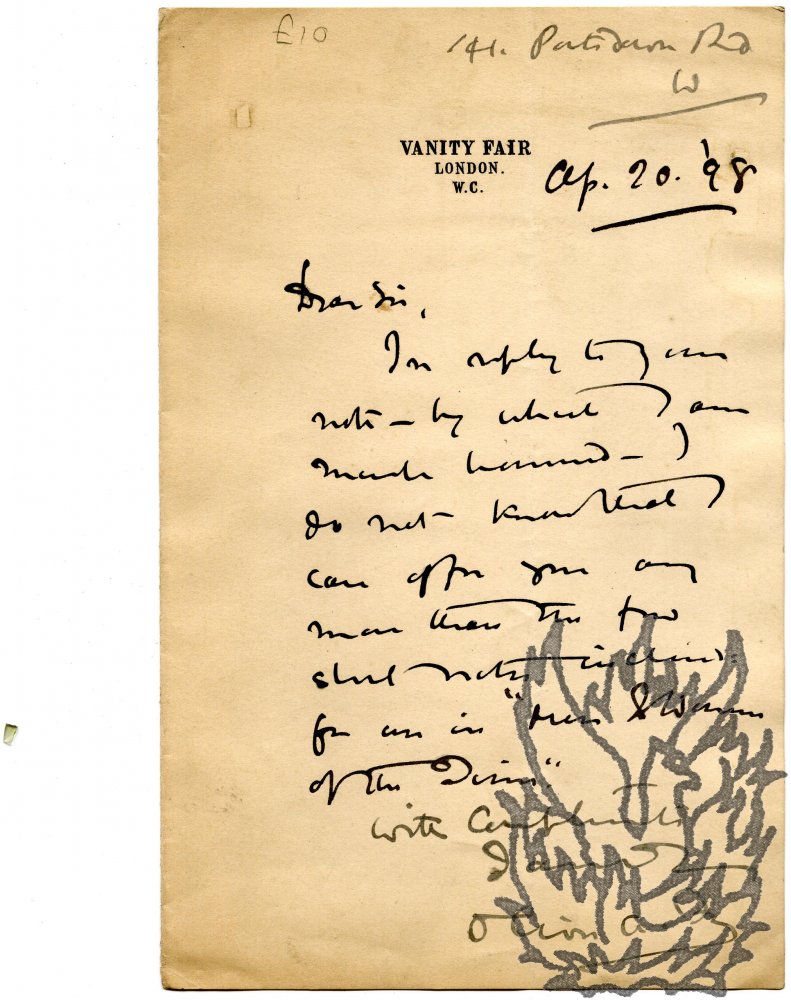 £10
141. Portsdown Rd
W
VANITY FAIR
LONDON.
W.C.
Ap. 20. '98
Dear Sir,
In reply to your
note — by which I am
much honoured — I
do not know that I
can offer you any
more than the few
short notes enclosed
for use in "Men & Women
of the Time".
With Compliments
I am